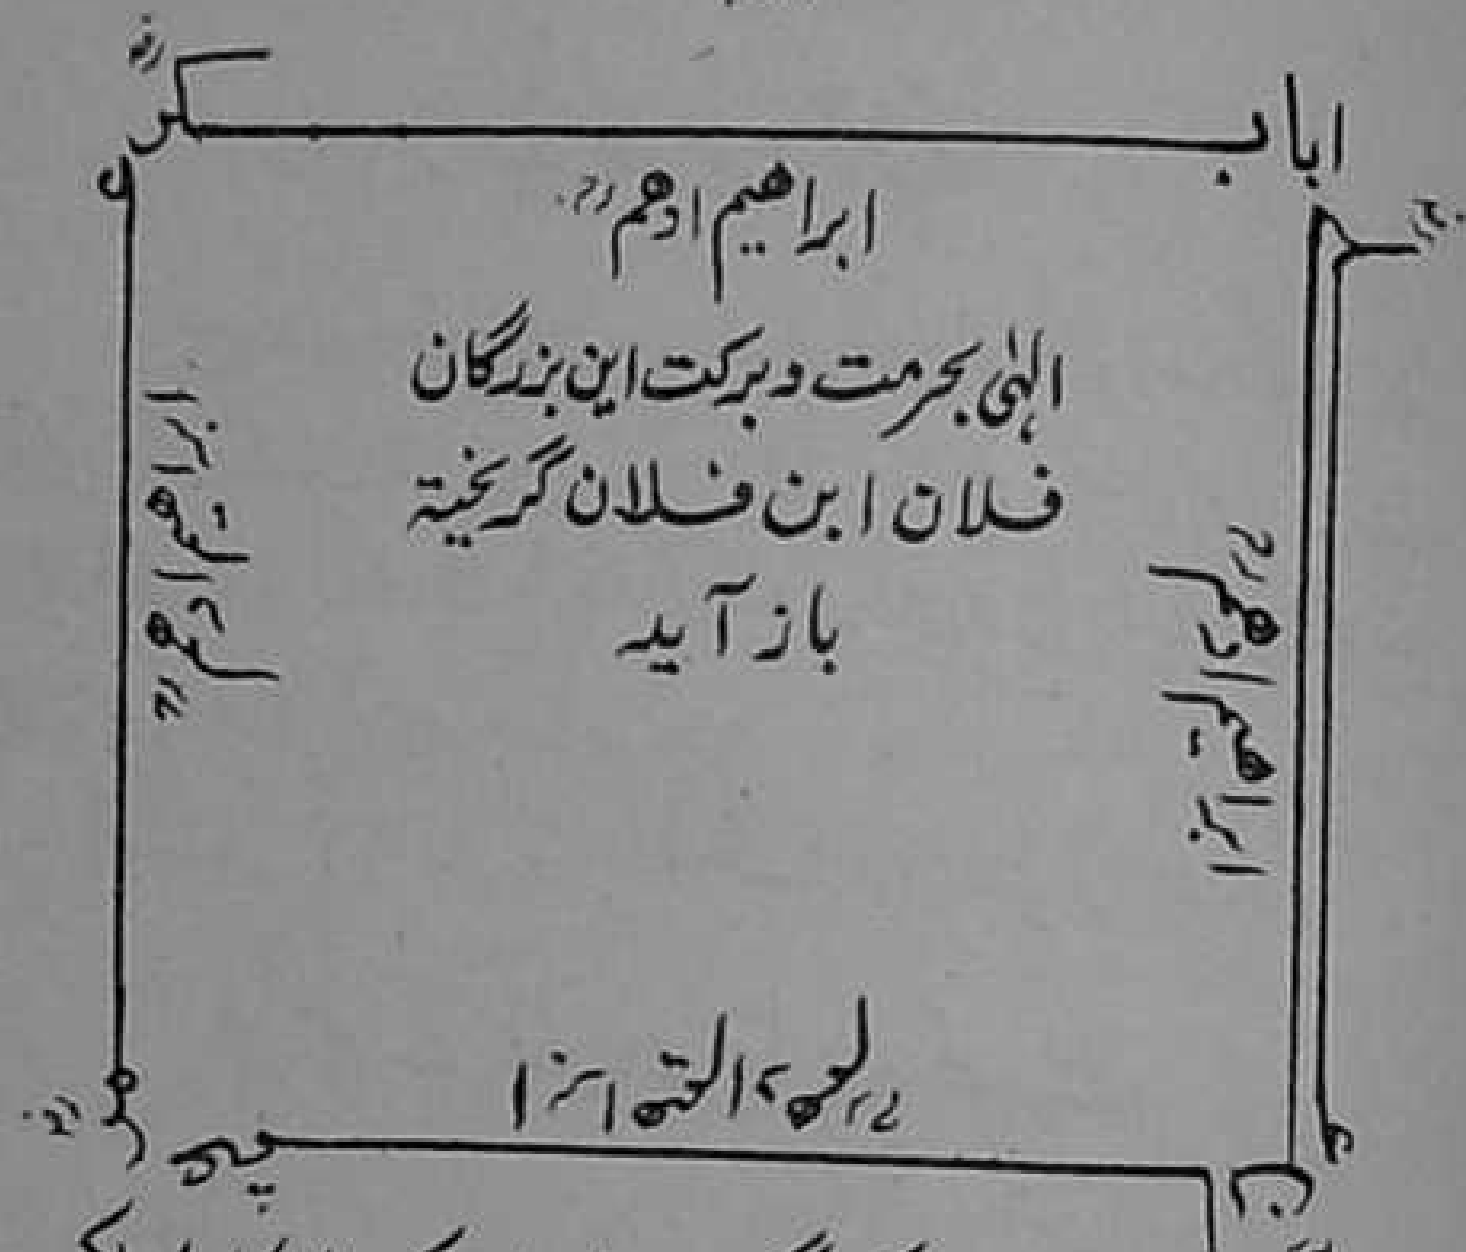 ابابکرؓ
ابراھیم ادھمؒ
الٰہی بحرمت و برکت این بزرگان
فلان ابن فلان گریختہ
باز آید
ابراھیم ادھمؒ
ابراھیم ادھمؒ
ابراھیم ادھمؒ
عمرؓ